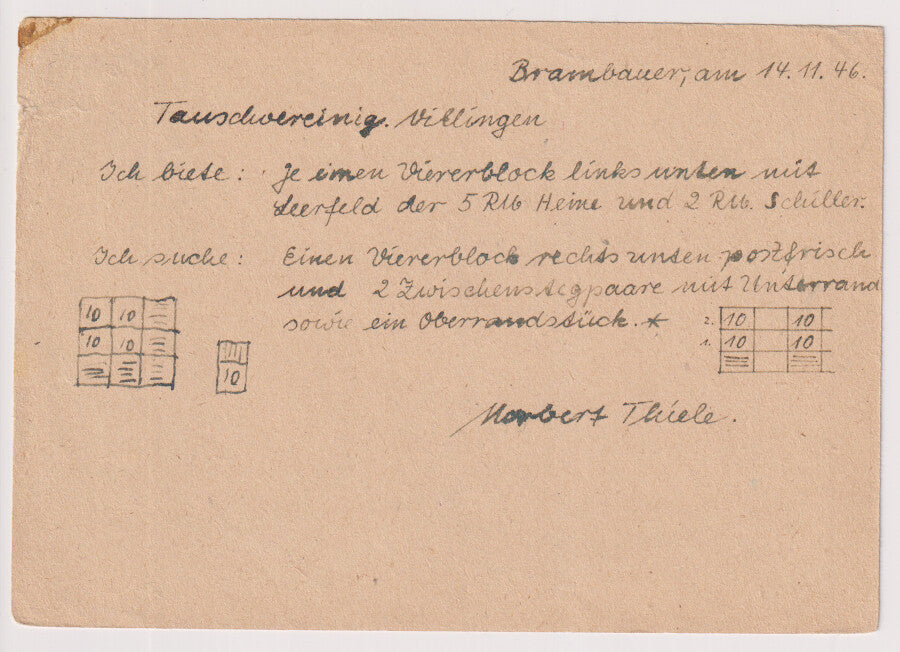 Brambauer, am 14. 11. 46.
Tauschvereinig. Villingen
Ich biete: Je einen Viererblock links unten mit
Leerfeld der 5 RM Heine und 2 RM. Schiller.
Ich suche: Einen Viererblock rechts unten postfrisch
und 2 Zwischenstegpaare mit Unterrand
sowie ein Oberrandstück. *
10 10
10 10
10
2. 10 10
1. 10 10
Norbert Thiele.